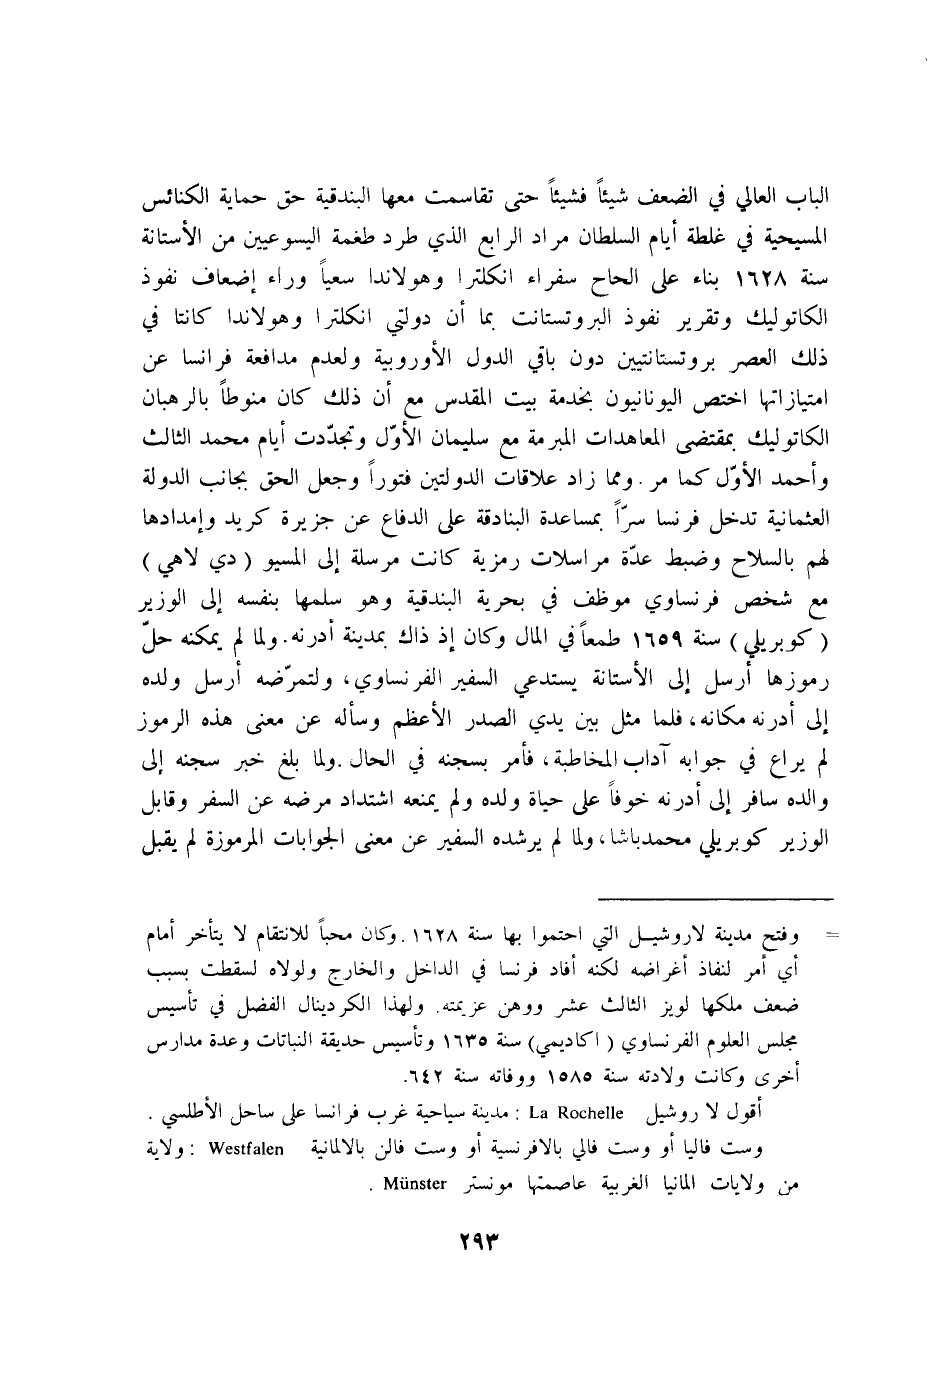 الباب العالي في الضعف شيئاً فشيئاً حتى تقاسمت معها البندقية حق حماية الكنائس
المسيحية في غلطة أيام السلطان مراد الرابع الذي طرد طغمة اليسوعيين من الأستانة
سنة ١٦٢٨ بناء على الحاح سفراء انكلترا وهولاندا سعياً وراء إضعاف نفوذ
الكاتوليك وتقرير نفوذ البروتستانت بما أن دولتي انكلترا وهولاندا كانتا في
ذلك العصر بروتستانتيين دون باقي الدول الأوروبية ولعدم مدافعة فرانسا عن
امتيازاتها اختص اليونانيون بخدمة بيت المقدس مع أن ذلك كان منوطاً بالرهبان
الكاتوليك بمقتضى المعاهدات المبرمة مع سليمان الأوّل وتجدّدت أيام محمد الثالث
وأحمد الأوّل كما مر. ومما زاد علاقات الدولتين فتوراً وجعل الحق بجانب الدولة
العثمانية تدخل فرنسا سرّاً بمساعدة البنادقة على الدفاع عن جزيرة كريد وإمدادها
لهم بالسلاح وضبط عدّة مراسلات رمزية كانت مرسلة إلى المسيو ( دي لاهي )
مع شخص فرنساوي موظف في بحرية البندقية وهو سلمها بنفسه إلى الوزير
( كوبريلي ) سنة ١٦٥٩ طمعاً في المال وكان إذ ذاك بمدينة أدرنه. ولما لم يمكنه حلّ
رموزها أرسل إلى الأستانة يستدعي السفير الفرنساوي، ولتمرّضه أرسل ولده
إلى أدرنه مكانه، فلما مثل بين يدي الصدر الأعظم وسأله عن معنى هذه الرموز
لم يراع في جوابه آداب المخاطبة، فأمر بسجنه في الحال. ولما بلغ خبر سجنه إلى
والده سافر إلى أدرنه خوفاً على حياة ولده ولم يمنعه اشتداد مرضه عن السفر وقابل
الوزير كوبريلي محمدباشا، ولما لم يرشده السفير عن معنى الجوابات المرموزة لم يقبل
= وفتح مدينة لاروشيل التي احتموا بها سنة ١٦٢٨. وكان محباً للانتقام لا يتأخر أمام
أي أمر لنفاذ أغراضه لكنه أفاد فرنسا في الداخل والخارج ولولاه لسقطت بسبب
ضعف ملكها لويز الثالث عشر ووهن عزيمته. ولهذا الكردينال الفضل في تأسيس
مجلس العلوم الفرنساوي ( اكاديمي) سنة ١٦٣٥ وتأسيس حديقة النباتات وعدة مدارس
أخرى وكانت ولادته سنة ١٥٨٥ ووفاته سنة ٦٤٢.
أقول لا روشيل La Rochelle : مدينة سياحية غرب فرانسا على ساحل الأطلسي .
وست فاليا أو وست فالي بالافرنسية أو وست فالن بالالمانية Westfalen : ولاية
من ولايات المانيا الغربية عاصمتها مونستر Münster .
٢٩٣